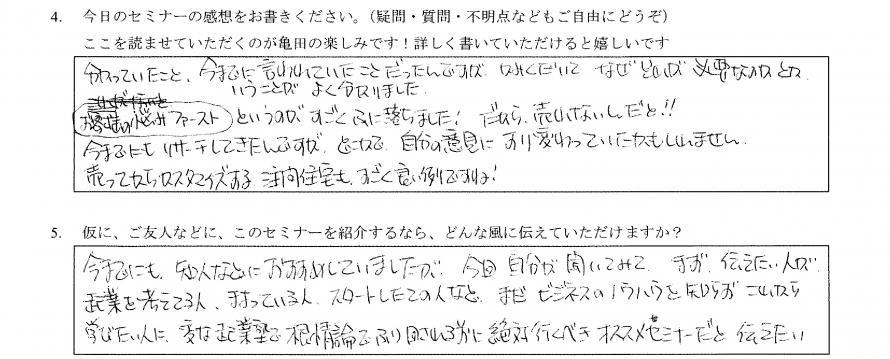 4. 今日のセミナーの感想をお書きください。(疑問・質問・不明点などもご自由にどうぞ)
ここを読ませていただくのが亀田の楽しみです！詳しく書いていただけると嬉しいです
分かっていたこと、今までに言われていたことだったんですが、かみくだいて なぜ どれが 必要なのかとか
いうことが よく分かりました
お客様の悩みファースト というのが すごく ふに落ちました！ だから、売れないんだと!!
今までにも リサーチしてきたんですが、どこかで、自分の意見に すり変わっていたかもしれません
売ってからカスタマイズする 注向住宅も すごく良い例ですね！
5. 仮に、ご友人などに、このセミナーを紹介するなら、どんな風に伝えていただけますか？
今までにも、知人などにおすすめしていましたが、今回 自分が 聞いてみて、まず、伝えたい人が
起業を考えてる人、まよっている人、スタートしたての人など、まだ ビジネスのノウハウを知らず これから
学びたい人に、変な起業塾で 根情論で ふり回される前に 絶対行くべき オススメセミナーだと 伝えたい